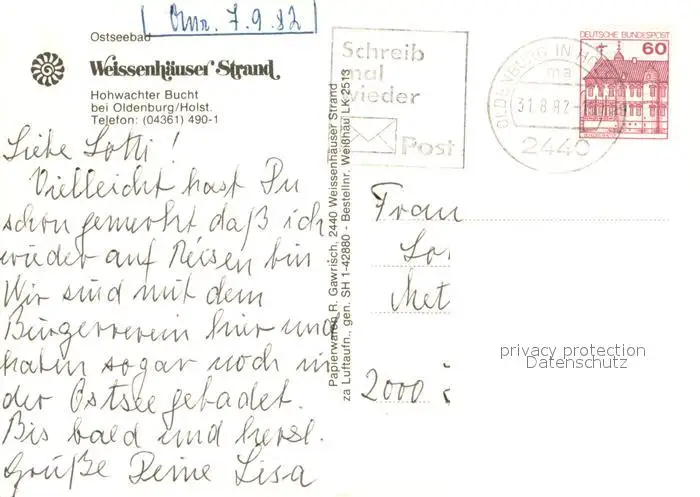 Anz. 7.9.82
Ostseebad
Weissenhäuser Strand
Hohwachter Bucht
bei Oldenburg/Holst.
Telefon: (04361) 490-1
Liebe Lotti!
Vielleicht hast Du
schon gemerkt daß ich
wieder auf Reisen bin
Wir sind mit dem
Bürgerverein hier und
haben sogar noch in
der Ostsee gebadet.
Bis bald und herzl.
Grüße Deine Lisa
Papierwaren R. Gawrisch, 2440 Weissenhäuser Strand
za Luftaufn., gen. SH 1-42880 - Bestellnr. Weißhäu LK 2513
Schreib
mal
wieder
Post
OLDENBURG IN HO
ma
31.8.82
2440
DEUTSCHE BUNDESPOST
60
Frau
Lo
Met
2000
privacy protection
Datenschutz